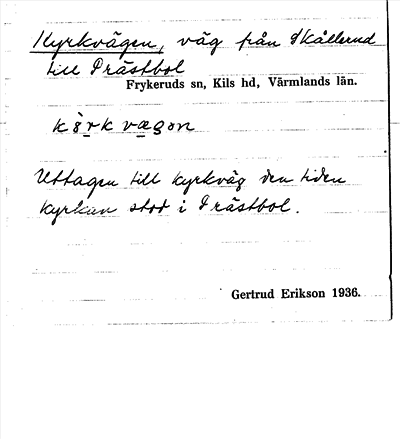 Kyrkvägen, väg från Skållerud
till Prästbol
Frykeruds sn, Kils hd, Värmlands län.
Uttagen till kyrkväg den tiden
kyrkan stod i Prästbol.
Gertrud Erikson 1936.